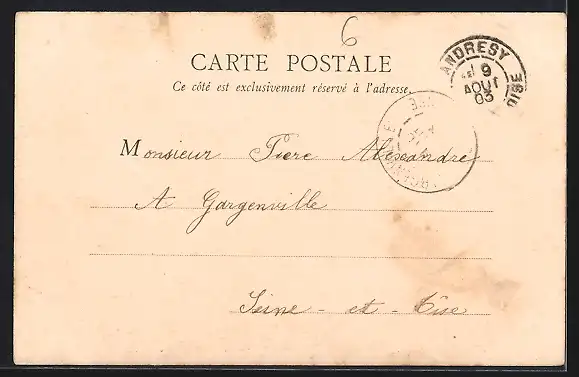 6
CARTE POSTALE
Ce côté est exclusivement réservé à l'adresse.
ANDRESY
9
AOUT
03
OISE
Monsieur Piere Alexandre
A Gargenville
Seine - et - Oise